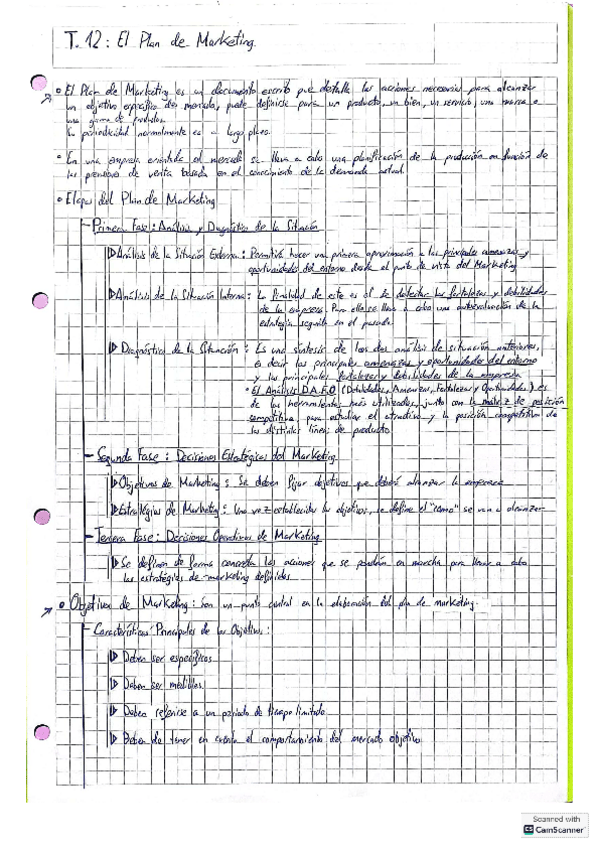 T. 12: El Plan de Marketing.
• El Plan de Marketing es un documento escrito que detalla las acciones necesarias para alcanzar
un objetivo específico del mercado, puede definirse para un producto, un bien, un servicio, una marca o
una gama de productos.
Su periodicidad normalmente es a largo plazo.
• En una empresa orientada al mercado se lleva a cabo una planificación de la producción en función de
las previsiones de venta basada en el conocimiento de la demanda actual.
• Etapas del Plan de Marketing
- Primera Fase: Análisis y Diagnóstico de la Situación
Análisis de la Situación Externa: Permitirá hacer una primera aproximación a las principales amenazas y
oportunidades del entorno desde el punto de vista del Marketing
Análisis de la Situación Interna: La finalidad de este es el de detectar las fortalezas y debilidades
de la empresa. Para ello se lleva a cabo una autoevaluación de la
estrategia seguida en el pasado.
Diagnóstico de la Situación: Es una síntesis de los dos análisis de situación anteriores,
es decir las principales amenazas y oportunidades del entorno
y las principales fortalezas y debilidades de la empresa
• El Análisis D.A.F.O (Debilidades, Amenazas, Fortalezas y Oportunidades) es
de las herramientas más utilizadas, junto con la matriz de posición
competitiva, para estudiar el atractivo y la posición competitiva de
las distintas líneas de producto
- Segunda Fase: Decisiones Estratégicas del Marketing
Objetivos de Marketing: Se deben fijar objetivos que deberá alcanzar la empresa
Estratégias de Marketing: Una vez establecidos los objetivos, se define el "como" se van a alcanzar
- Tercera Fase: Decisiones Operativas de Marketing
Se definen de forma concreta las acciones que se pondrán en marcha para llevar a cabo
las estratégias de marketing definidas
• Objetivos de Marketing: Son un punto central en la elaboración del plan de marketing.
- Características Principales de los Objetivos:
Deben ser específicos
Deben ser medibles
Deben referirse a un período de tiempo limitado
Deben de tener en cuenta el comportamiento del mercado objetivo
Scanned with
CamScanner